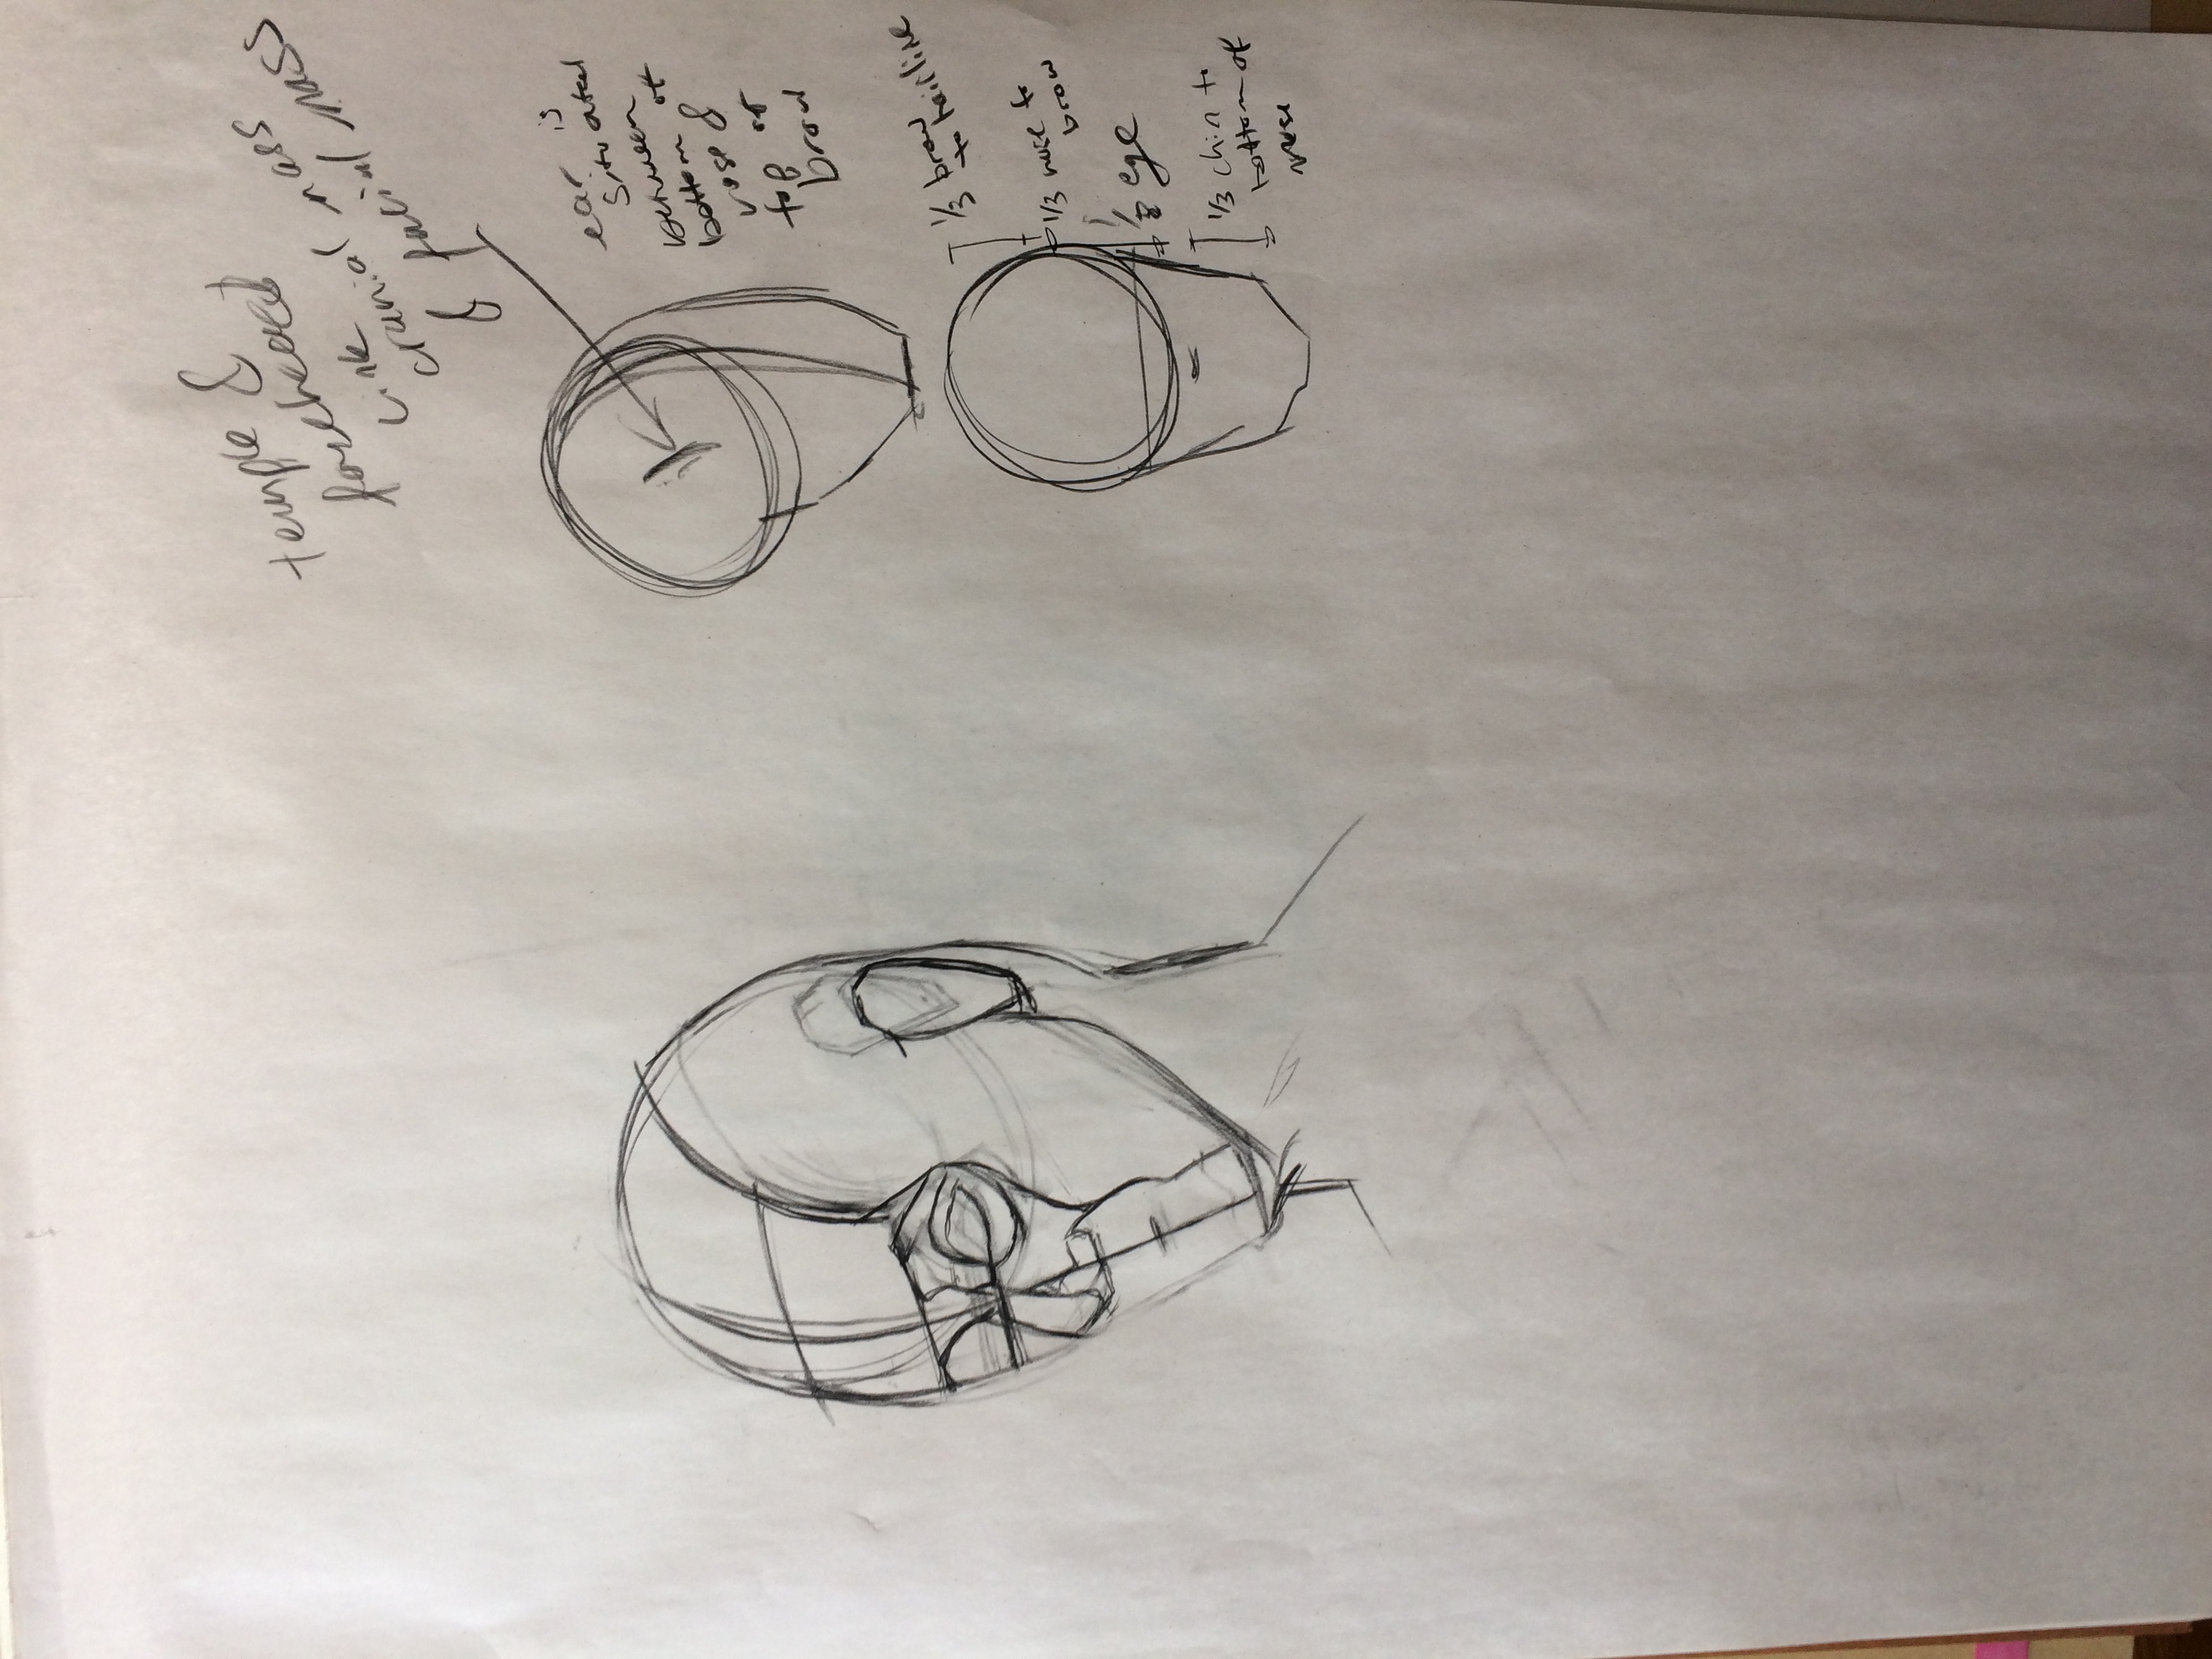 temple &
forehead
link
cranial mass
& facial mass
ear is
situated
between
bottom of
nose &
top of
brow
1/3 brow
to hairline
1/3 nose to
brow
1/2 eye
1/3 chin to
bottom of
nose